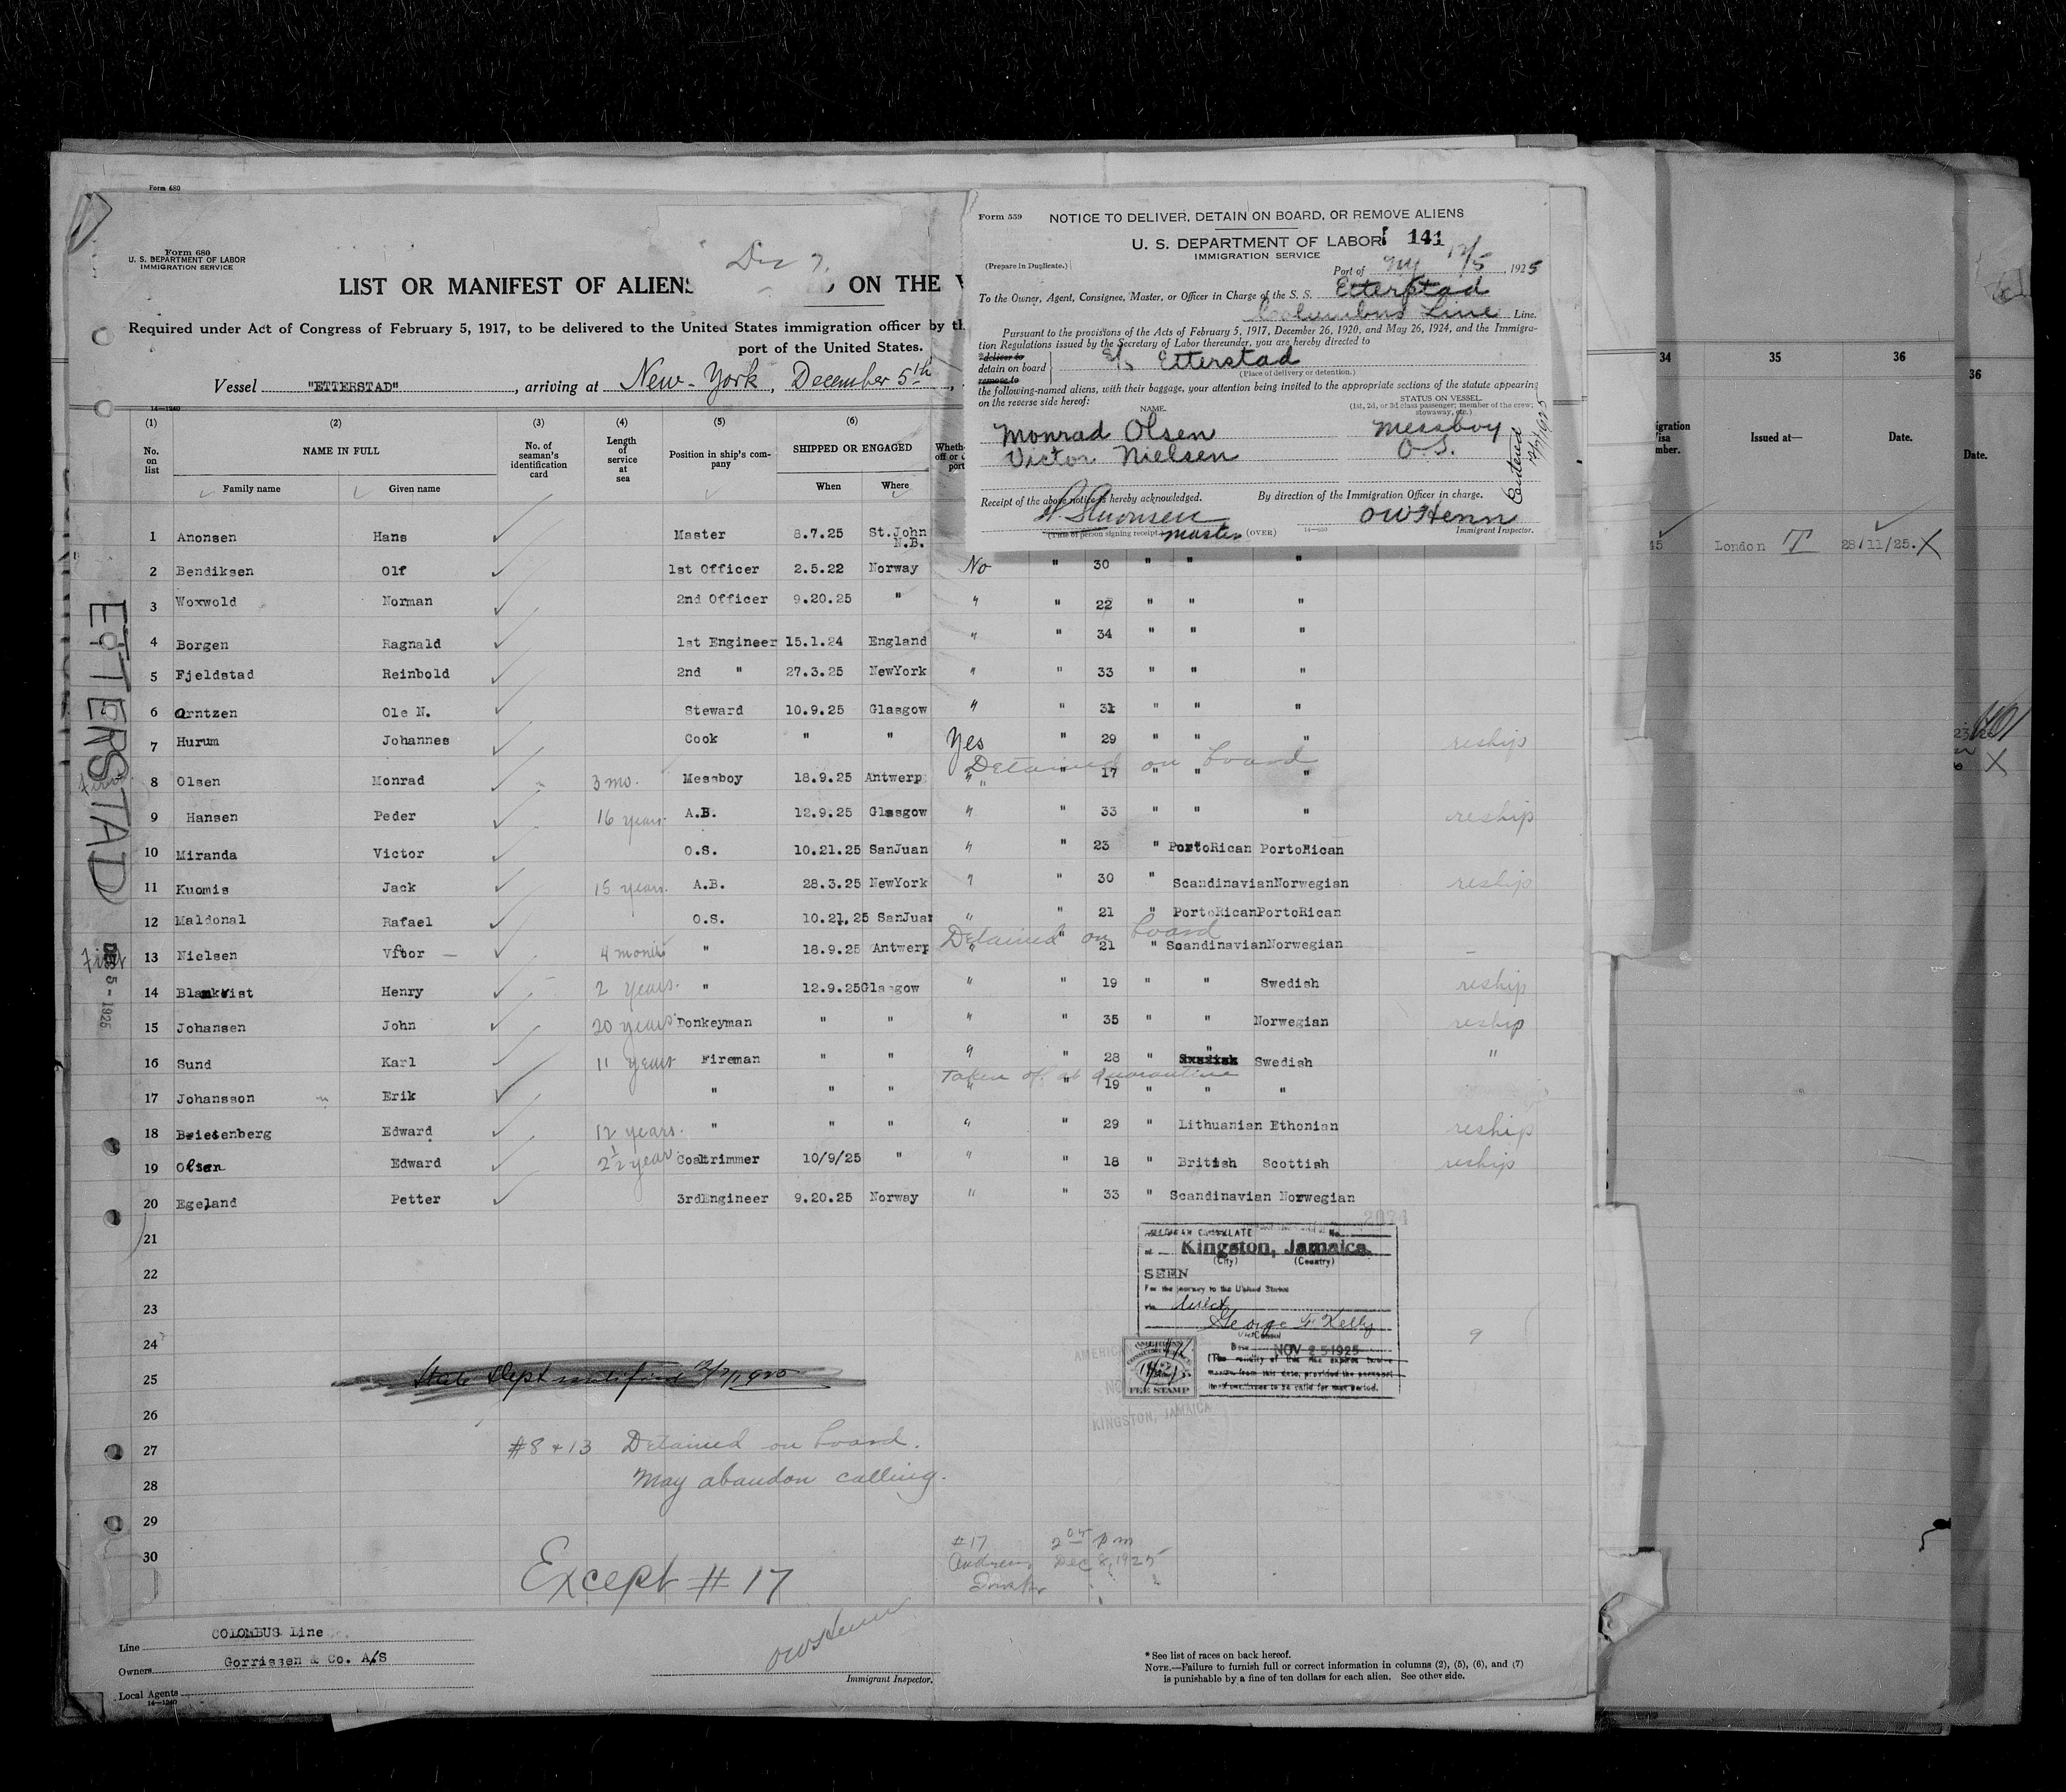 Form 680
Form 680
U. S. DEPARTMENT OF LABOR
IMMIGRATION SERVICE
Dec 7,
LIST OR MANIFEST OF ALIENS ON THE
Required under Act of Congress of February 5, 1917, to be delivered to the United States immigration officer by th
port of the United States.
Vessel "ETTERSTAD", arriving at New-York, December 5th,
14—1240
(1) (2) (3) (4) (5) (6)
No. on list
NAME IN FULL
Family name Given name
No. of seaman's identification card
Length of service at sea
Position in ship's company
SHIPPED OR ENGAGED
When Where
1 Anonsen Hans Master 8.7.25 St.John N.B.
2 Bendiksen Olf 1st Officer 2.5.22 Norway No " 30 " " "
3 Woxwold Norman 2nd Officer 9.20.25 " " " 22 " " "
4 Borgen Ragnald 1st Engineer 15.1.24 England " " 34 " " "
5 Fjeldstad Reinbold 2nd " 27.3.25 NewYork " " 33 " " "
6 Arntzen Ole N. Steward 10.9.25 Glasgow " " 31 " " "
7 Hurum Johannes Cook " " Yes " 29 " " " reship
Detained on board
8 Olsen Monrad 3 mo. Messboy 18.9.25 Antwerp " " 17 " " "
9 Hansen Peder 16 years. A.B. 12.9.25 Glasgow " " 33 " " " reship
10 Miranda Victor O.S. 10.21.25 SanJuan " " 23 " PortoRican PortoRican
11 Kuomis Jack 15 years. A.B. 28.3.25 NewYork " " 30 " Scandinavian Norwegian reship
12 Maldonal Rafael O.S. 10.21.25 SanJuan " " 21 " PortoRican PortoRican
Detained on board
13 Nielsen Vitor 4 months " 18.9.25 Antwerp " " 21 " Scandinavian Norwegian
14 Blamkvist Henry 2 years. " 12.9.25 Glasgow " " 19 " " Swedish reship
15 Johansen John 20 years Donkeyman " " " " 35 " " Norwegian reship
16 Sund Karl 11 years Fireman " " " " 28 " " Swedish "
Taken off at quarantine
17 Johansson Erik " " " " " 19 " " "
18 Brietenberg Edward 12 years. " " " " " 29 " Lithuanian Ethonian reship
19 Olsen Edward 2½ year. Coaltrimmer 10/9/25 " " " 18 " British Scottish reship
20 Egeland Petter 3rdEngineer 9.20.25 Norway " " 33 " Scandinavian Norwegian
21
22
23
24
25
26
27
28
29
30
ETTERSTAD
First
First
DEC 5 - 1925
State Dept notified
#8 + 13 Detained on board.
May abandon calling.
Except #17
#17 2 05 pm
Dec 8, 1925
OWHenn
Immigrant Inspector.
Line COLOMBUS Line
Owners Gorrissen & Co. A/S
Local Agents
14—1240
* See list of races on back hereof.
NOTE.—Failure to furnish full or correct information in columns (2), (5), (6), and (7)
is punishable by a fine of ten dollars for each alien. See other side.
AMERICAN CONSULATE No.
at Kingston, Jamaica.
(City) (Country)
SEEN
For the journey to the United States
via direct
George F. Kelly
Vice Consul
Date NOV 25 1925
FEE STAMP
KINGSTON, JAMAICA
9
Form 559
NOTICE TO DELIVER, DETAIN ON BOARD, OR REMOVE ALIENS
U. S. DEPARTMENT OF LABOR
141
IMMIGRATION SERVICE
(Prepare in Duplicate.)
Port of NY 12/5, 1925
To the Owner, Agent, Consignee, Master, or Officer in Charge of the S. S. Etterstad
Columbus Line Line.
Pursuant to the provisions of the Acts of February 5, 1917, December 26, 1920, and May 26, 1924, and the Immigra-
tion Regulations issued by the Secretary of Labor thereunder, you are hereby directed to
deliver to
detain on board S/s Etterstad
remove to
(Place of delivery or detention.)
the following-named aliens, with their baggage, your attention being invited to the appropriate sections of the statute appearing
on the reverse side hereof:
NAME.
STATUS ON VESSEL.
(1st, 2d, or 3d class passenger; member of the crew; stowaway, etc.)
Monrad Olsen Messboy
Victor Nielsen O.S.
Receipt of the above notice is hereby acknowledged.
By direction of the Immigration Officer in charge.
OWHenn
(Title of person signing receipt.) Master (OVER) 14—650 Immigrant Inspector.
34 35 36
Issued at— Date.
45 London T 28/11/25. X
36
Date.
X